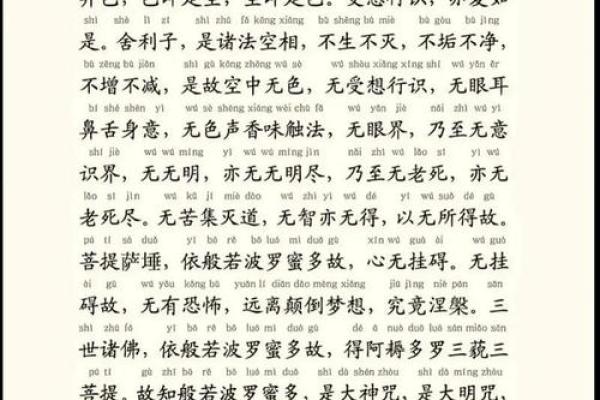 异色，色即是空，空即是色。受想行识，亦复如
shì shè lì zǐ shì zhū fǎ kōng xiāng bù shēng bù miè bù gòu bù jìng
是。舍利子，是诸法空相，不生不灭，不垢不净，
bù zēng bù jiǎn shì gù kōng zhōng wú sè wú shòu xiǎng xíng shí wú yǎn ěr
不增不减，是故空中无色，无受想行识，无眼耳
bí shé shēn yì wú sè shēng xiāng wèi chù fǎ wú yǎn jiè nǎi zhì wú yì
鼻舌身意，无色声香味触法，无眼界，乃至无意
shí jiè wú wú míng yì wú wú míng jìn nǎi zhì wú lǎo sǐ yì wú
识界，无无明，亦无无明尽，乃至无老死，亦无
lǎo sǐ jìn wú kǔ jí miè dào wú zhì yì wú dé yǐ wú suǒ dé gù
老死尽。无苦集灭道，无智亦无得，以无所得故。
pú tí sà duǒ yī bō rě bō luó mì duō gù xīn wú guà ài wú guà
菩提萨埵，依般若波罗蜜多故，心无挂碍。无挂
ài gù wú yǒu kǒng bù yuǎn lí diān dǎo mèng xiǎng jiū jìng niè pán sān
碍故，无有恐怖，远离颠倒梦想，究竟涅槃。三
shì zhū fó yī bō rě bō luó mì duō gù dé ā nuò duō luó sān miǎo sān
世诸佛，依般若波罗蜜多故，得阿耨多罗三藐三
pú tí gù zhī bō rě bō luó mì duō shì dà shén zhòu shì dà míng zhòu
菩提。故知般若波罗蜜多，是大神咒，是大明咒，